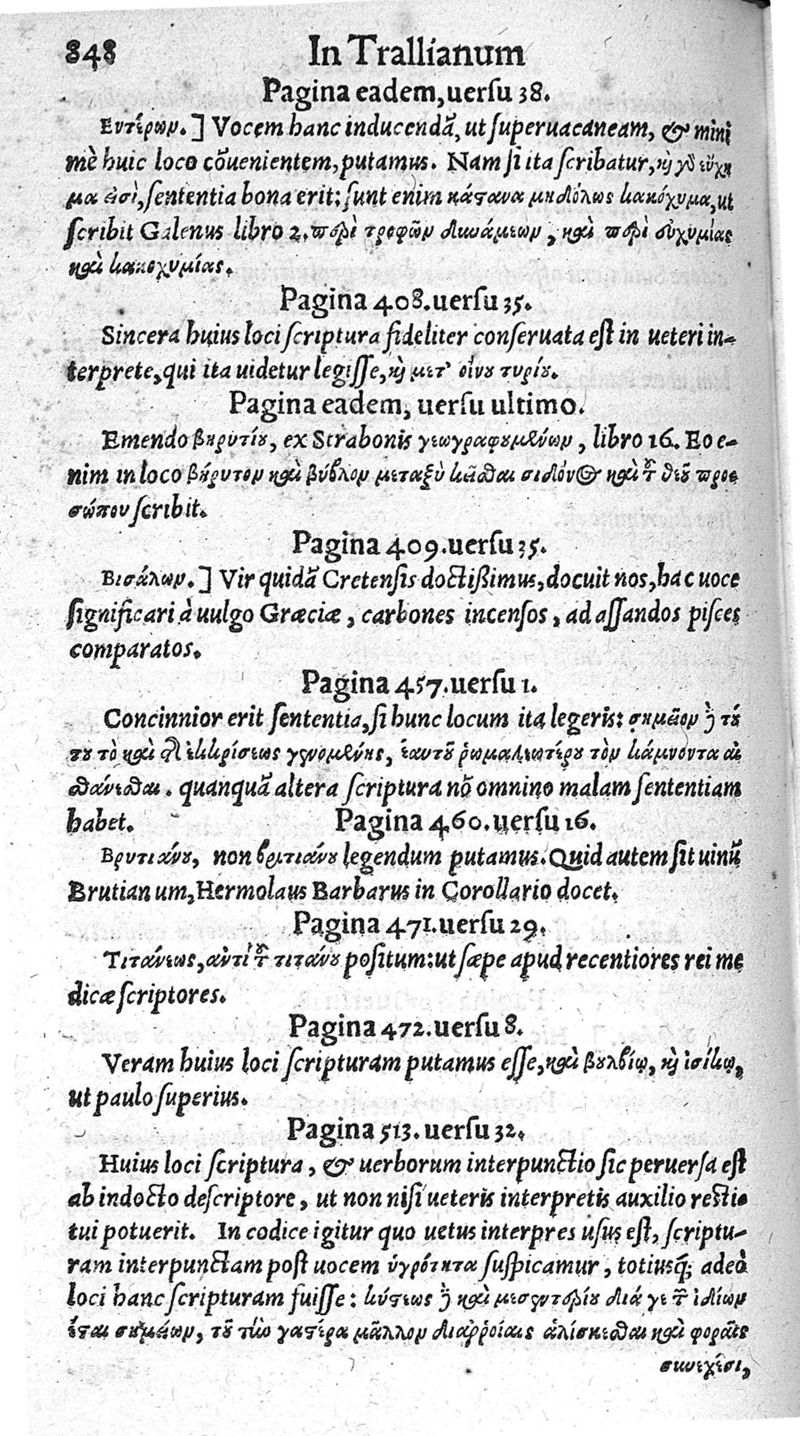 848 In Trallianum
Pagina eadem, uersu 38.
Εντέρων.] Vocem hanc inducendã, ut superuacaneam, & mini
mè huic loco cõuenientem, putamus. Nam si ita scribatur, καὶ γὸ εὔχυ
μα ἐσὶ, sententia bona erit: sunt enim κάστανα μηδόλως κακόχυμα, ut
scribit Galenus libro 2. περὶ τροφῶν δυνάμεων, καὶ περὶ εὐχυμίας
καὶ κακοχυμίας.
Pagina 408. uersu 35.
Sincera huius loci scriptura fideliter conseruata est in ueteri in-
terprete, qui ita uidetur legisse, καὶ μετ' οἴνου τυρίου.
Pagina eadem, uersu ultimo.
Emendo βηρυτίου, ex Strabonis γεωγραφουμένων, libro 16. Eo e-
nim in loco βήρυτον καὶ βύβλον μεταξὺ κεῖσθαι σιδόνος καὶ τοῦ θεοῦ προ
σώπου scribit.
Pagina 409. uersu 35.
Βισάλων.] Vir quidã Cretensis doctissimus, docuit nos, hac uoce
significari à uulgo Græciæ, carbones incensos, ad assandos pisces
comparatos.
Pagina 457. uersu 1.
Concinnior erit sententia, si hunc locum ita legeris: σημεῖον δὲ τού
του τὸ καὶ τῆς ἐκκρίσεως γινομένης, ἑαυτοῦ ῥωμαλεωτέρου τὸν κάμνοντα αἰ
σθάνεσθαι. quanquã altera scriptura nõ omnino malam sententiam
habet. Pagina 460. uersu 16.
Βρυτιάνου, non βριτιάνου legendum putamus. Quid autem sit uinũ
Brutianum, Hermolaus Barbarus in Corollario docet.
Pagina 471. uersu 29.
Τιτάνεως, αὐτὶ τοῦ τιτάνου positum: ut sæpe apud recentiores rei me
dicæ scriptores.
Pagina 472. uersu 8.
Veram huius loci scripturam putamus esse, καὶ βουλβίῳ, καὶ ἰσίκῳ,
ut paulo superius.
Pagina 513. uersu 32.
Huius loci scriptura, & uerborum interpunctio sic peruersa est
ab indocto descriptore, ut non nisi ueteris interpretis auxilio resti-
tui potuerit. In codice igitur quo uetus interpres usus est, scriptu-
ram interpunctam post uocem ὑγρότητα suspicamur, totiusq́; adeò
loci hanc scripturam fuisse: κύστεως δὲ καὶ μεσεντερίου διά γε τῶν ἰδίων
ἔσαι σημείων, τοῦ τὴν γαστέρα μᾶλλον διαῤῥοίαις ἁλίσκεσθαι καὶ φοραῖς
συνεχέσι,